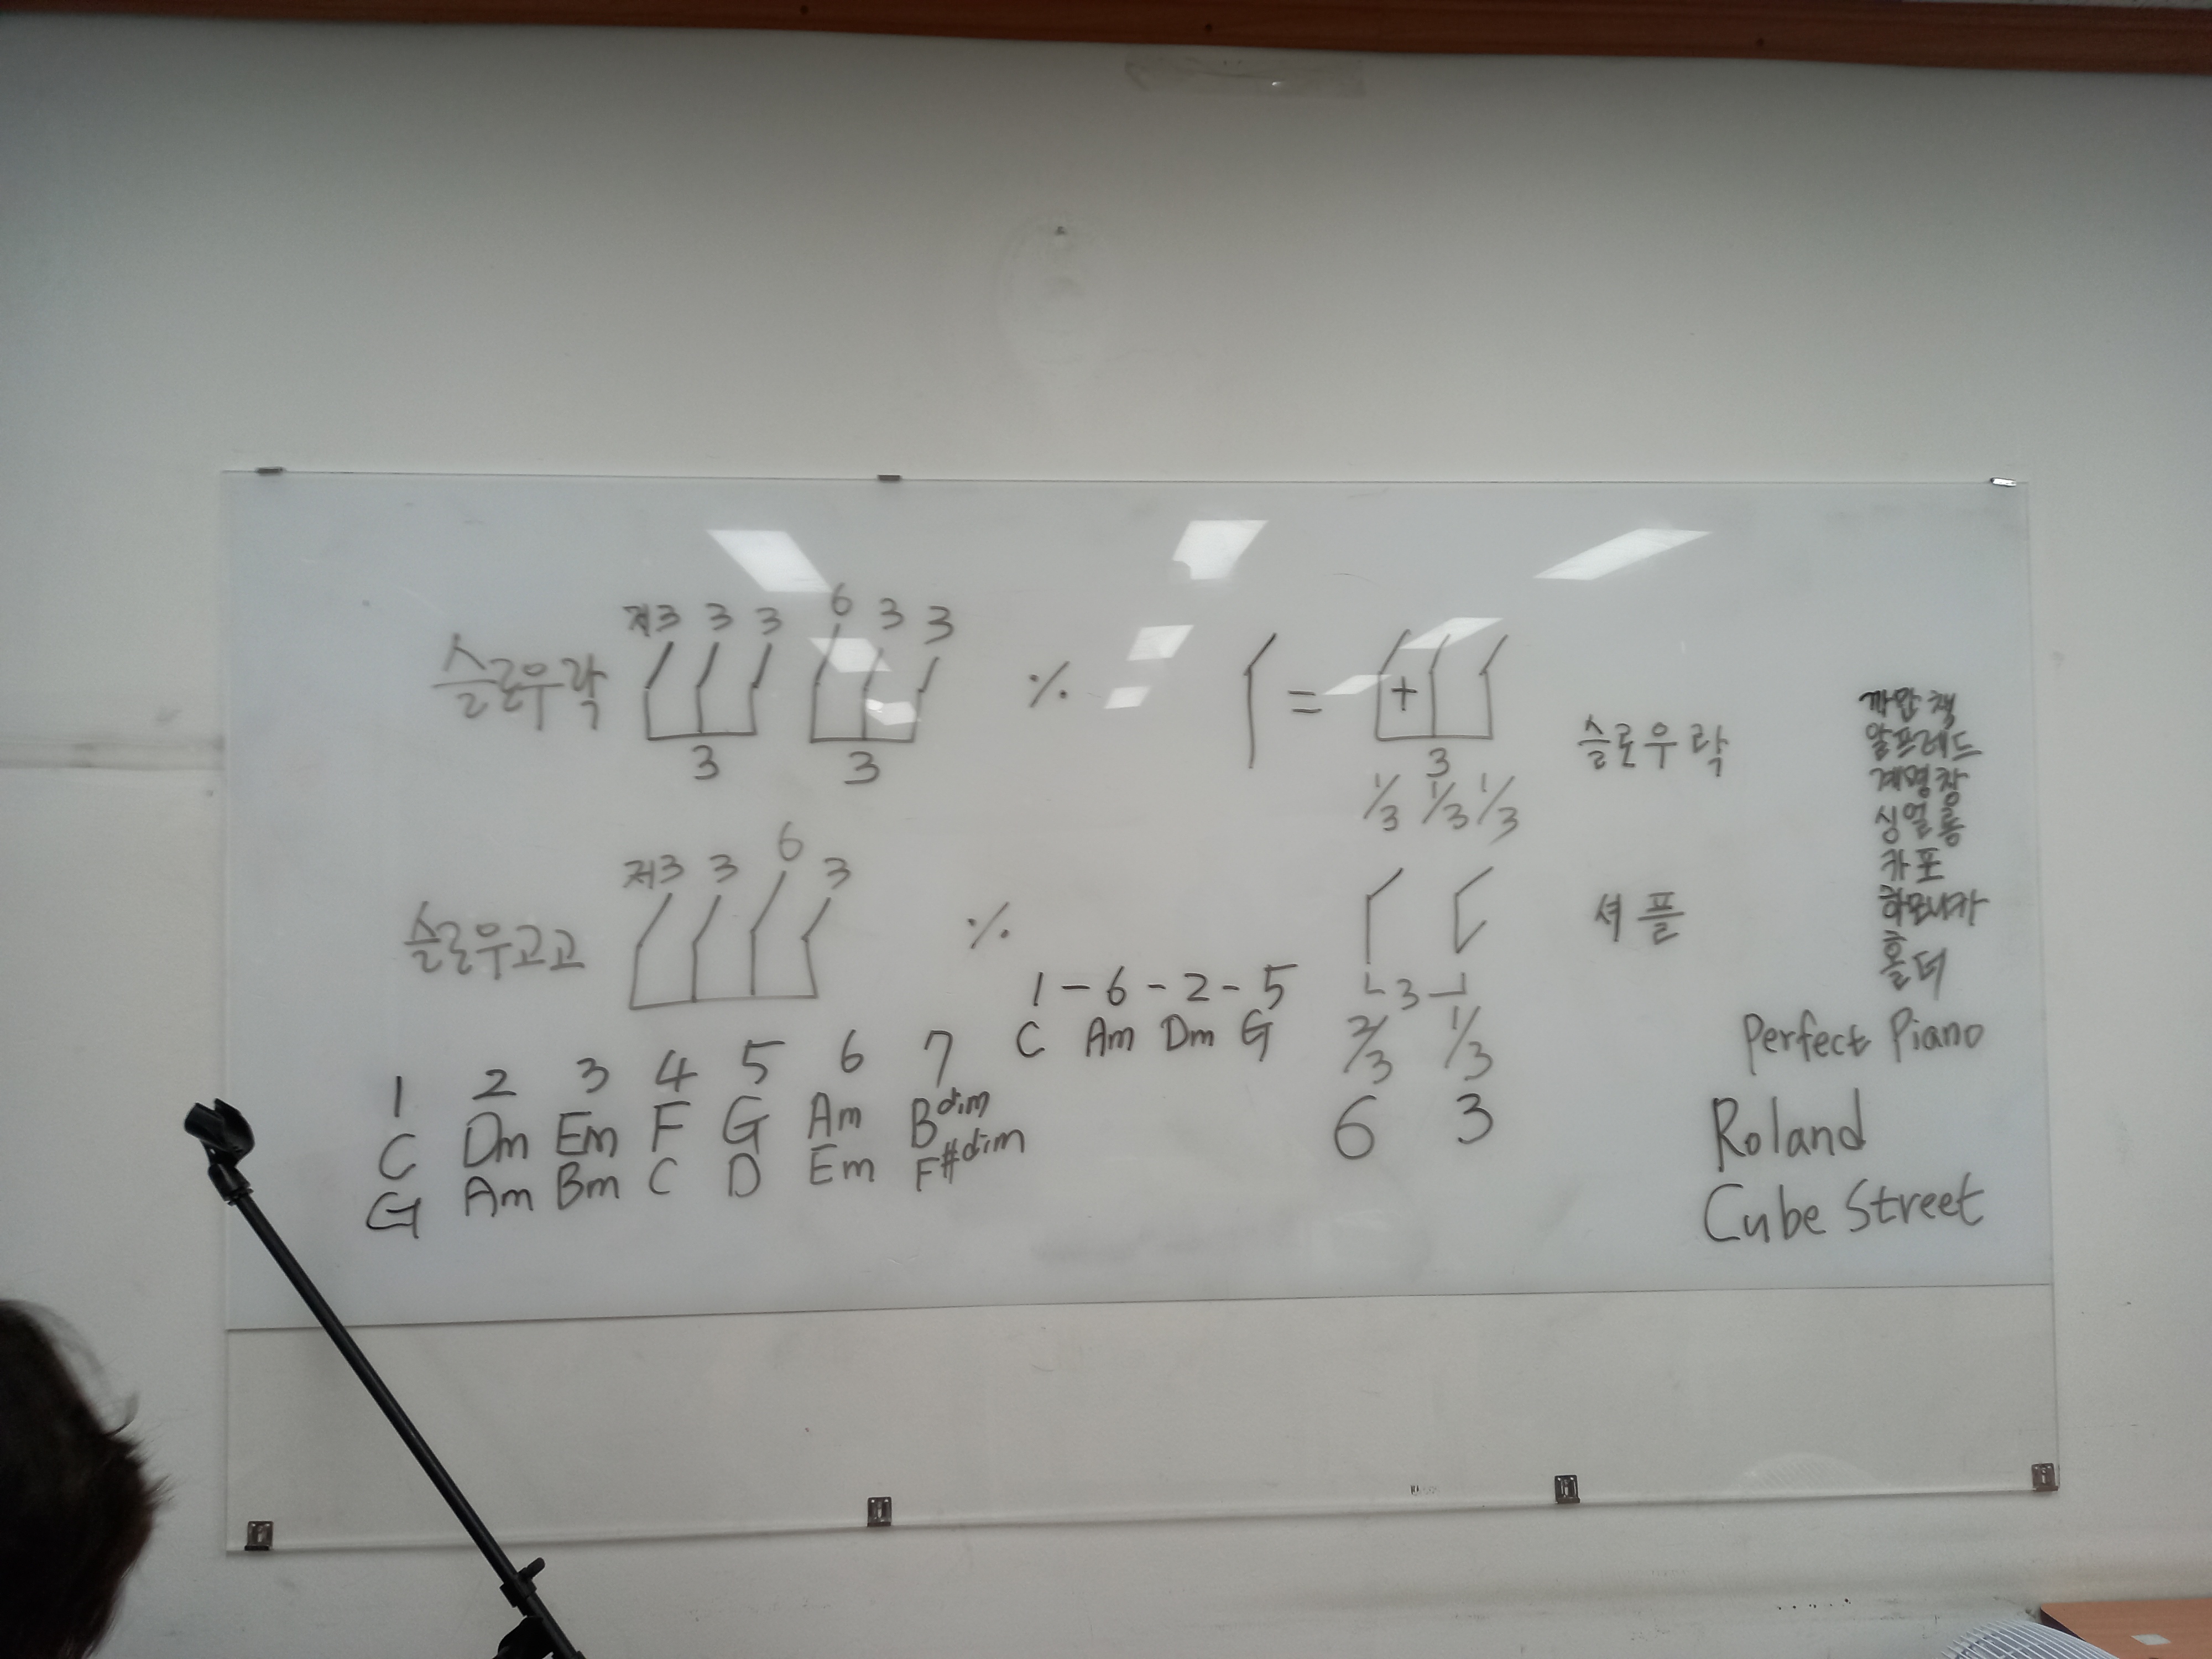 저3 3 3 6 3 3
슬로우락 ٪ = +
3 3 3
슬로우락
1/3 1/3 1/3
저3 3 6 3
슬로우고고 ٪
셔플
3
2/3 1/3
6 3
1 - 6 - 2 - 5
C Am Dm G
1 2 3 4 5 6 7
C Dm Em F G Am Bdim
G Am Bm C D Em F#dim
까만책
알프레드
계명창
싱얼롱
카포
하모니카
홀더
Perfect Piano
Roland
Cube Street